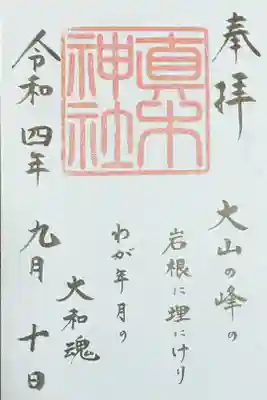 奉拝
真木
神社
大山の峰の
岩根に埋にけり
わが年月の
大和魂
令和四年九月十日